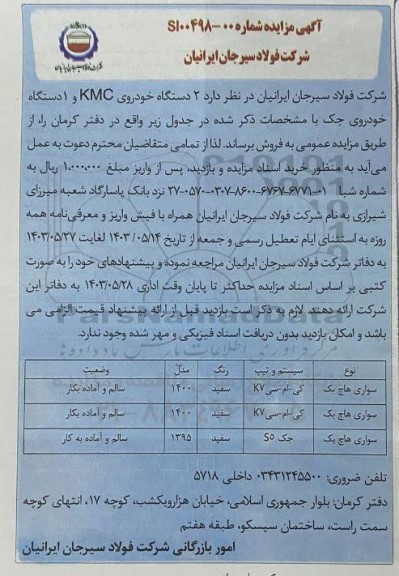 آگهی مزایده شماره SI۰۰۴۹۸-۰۰
شرکت فولاد سیرجان ایرانیان
شرکت فولاد سیرجان ایرانیان در نظر دارد ۲ دستگاه خودروی KMC و ۱ دستگاه
خودروی جک با مشخصات ذکر شده در جدول زیر واقع در دفتر کرمان را، از
طریق مزایده عمومی به فروش برساند. لذا از تمامی متقاضیان محترم دعوت به عمل
می‌آید به منظور خرید اسناد مزایده و بازدید، پس از واریز مبلغ ۱.۰۰۰.۰۰۰ ریال به
شماره شبا ۰۱-۶۷۷۱-۶۷۶۷-۸۶۰۰-۰۳۰۷-۰۵۷۰-۲۷ نزد بانک پاسارگاد شعبه میرزای
شیرازی به نام شرکت فولاد سیرجان ایرانیان همراه با فیش واریز و معرفی‌نامه همه
روزه به استثنای ایام تعطیل رسمی و جمعه از تاریخ ۱۴۰۳/۰۵/۱۴ لغایت ۱۴۰۳/۰۵/۲۷
به دفاتر شرکت فولاد سیرجان ایرانیان مراجعه نموده و پیشنهادهای خود را به صورت
کتبی بر اساس اسناد مزایده حداکثر تا پایان وقت اداری ۱۴۰۳/۰۵/۲۸ به دفاتر این
شرکت ارائه دهند. لازم به ذکر است بازدید قبل از ارائه پیشنهاد قیمت الزامی می
باشد و امکان بازدید بدون دریافت اسناد فیزیکی و مهر شده وجود ندارد.
نوع سیستم و تیپ رنگ مدل وضعیت
سواری هاچ بک کی-ام-سی K7 سفید ۱۴۰۰ سالم و آماده بکار
سواری هاچ بک کی-ام-سی K7 سفید ۱۴۰۰ سالم و آماده بکار
سواری هاچ بک جک S5 سفید ۱۳۹۵ سالم و آماده به کار
تلفن ضروری: ۰۳۴۳۱۲۴۵۵۰۰ داخلی ۵۷۱۸
دفتر کرمان: بلوار جمهوری اسلامی، خیابان هزارویکشب، کوچه ۱۷، انتهای کوچه
سمت راست، ساختمان سیسکو، طبقه هفتم
امور بازرگانی شرکت فولاد سیرجان ایرانیان